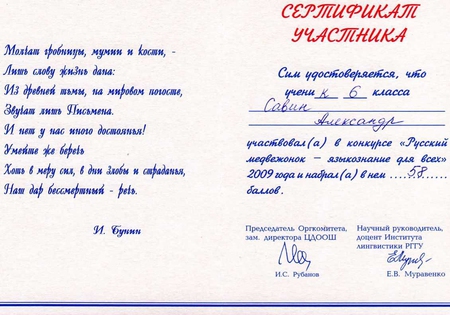 Молчат гробницы, мумии и кости, -
Лишь слову жизнь дана:
Из древней тьмы, на мировом погосте,
Звучат лишь Письмена.
И нет у нас иного достоянья!
Умейте же беречь
Хоть в меру сил, в дни злобы и страданья,
Наш дар бессмертный - речь.
И. Бунин
СЕРТИФИКАТ
УЧАСТНИКА
Сим удостоверяется, что
учени к 6 класса
Савин
Александр
участвовал(а) в конкурсе «Русский
медвежонок — языкознание для всех»
2009 года и набрал(а) в нем ....58....
баллов.
Председатель Оргкомитета,
зам. директора ЦДООШ
И.С. Рубанов
Научный руководитель,
доцент Института
лингвистики РГГУ
Е.В. Муравенко